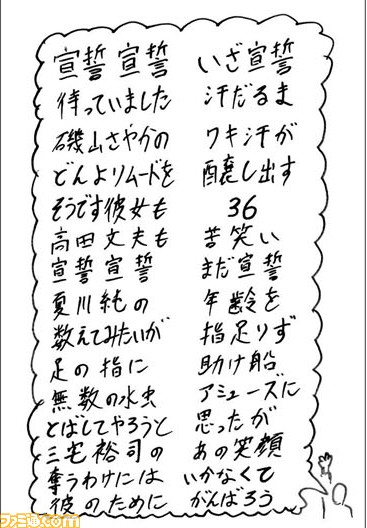 宣誓 宣誓 いざ宣誓
待っていました 汗だるま
磯山さやかの ワキ汗が
どんよりムードを 醸し出す
そうです彼女も 36
高田文夫も 苦笑い
宣誓 宣誓 まだ宣誓
夏川純の 年齢を
数えてみたいが 指足りず
足の指に 助け船
無数の水虫 アミューズに
とばしてやろうと 思ったが
三宅裕司の あの笑顔
奪うわけには いかなくて
彼のために がんばろう
ファミ通.com